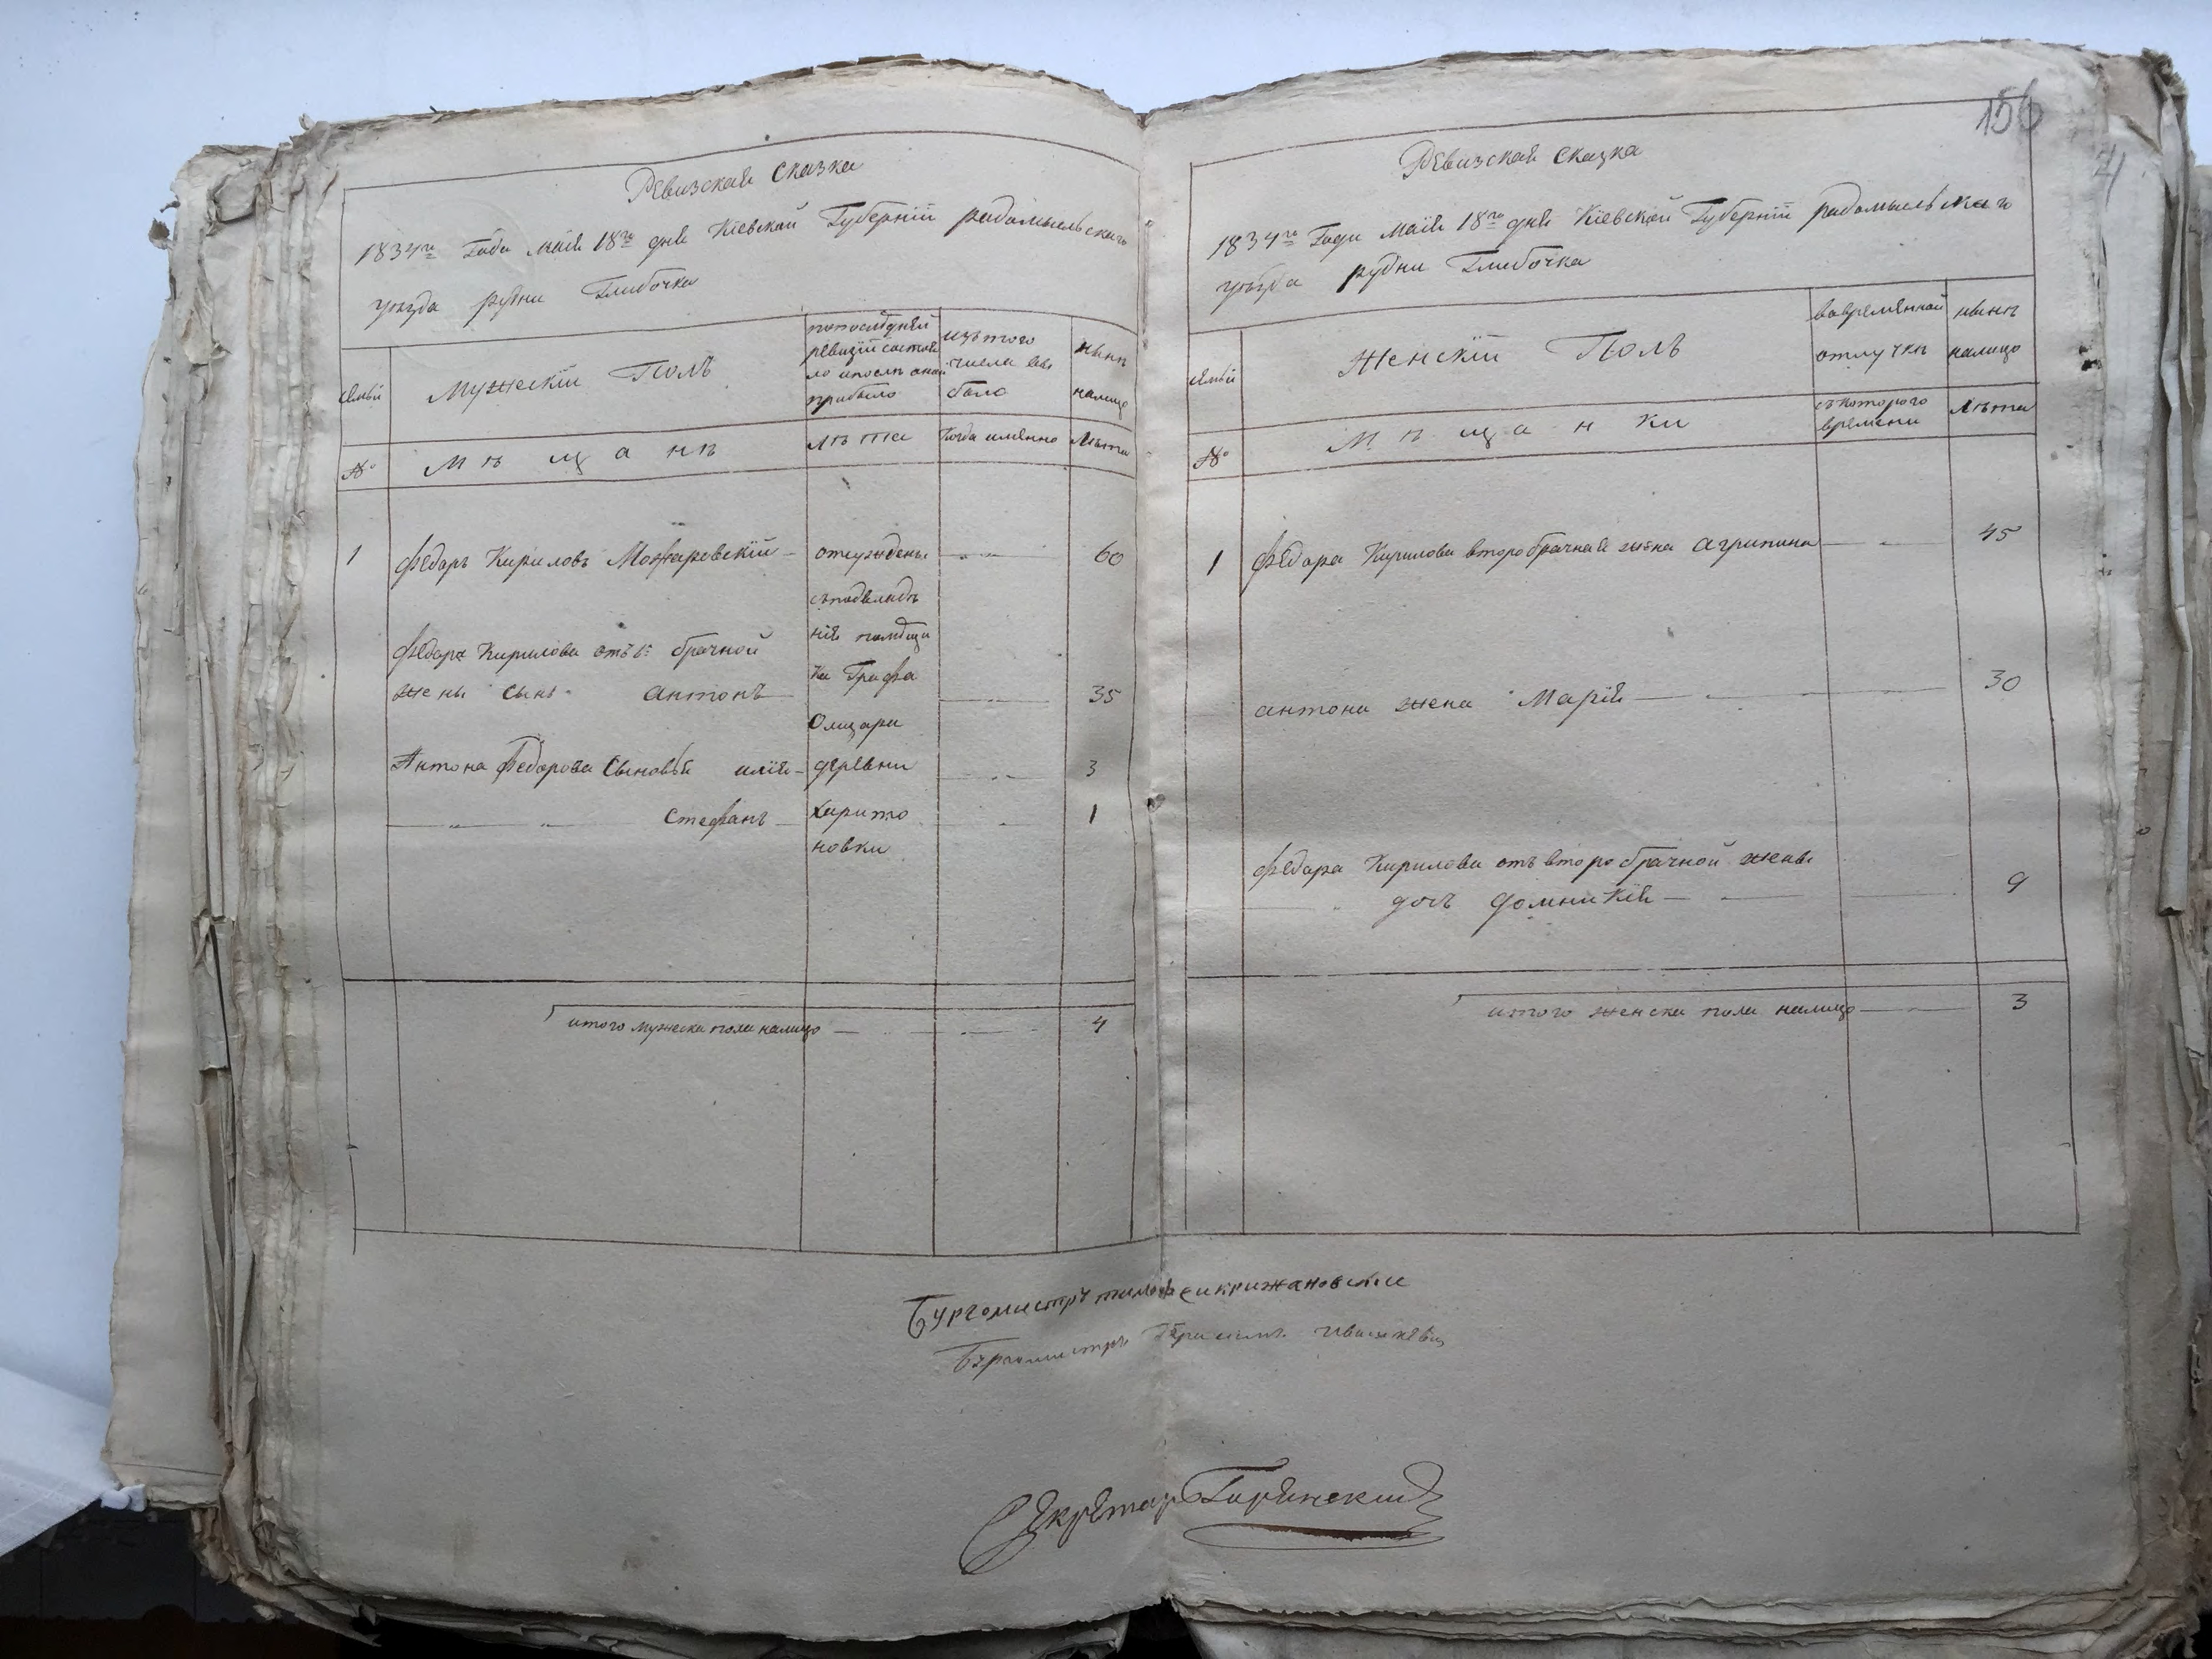 Ревизская сказка
1834го Года маія 18го дня Кіевской Губерніи радомысльского
уѣзда рудни Глибочка
Семьи
Мужескій Полъ
попослѣдней
ревизіи состоя
ло ипослѣ оной
прибыло
изътого
числа вы
было
нынѣ
налицо
№
Мѣщанѣ
лѣта
Когда имянно
Лѣта
1
Федоръ Кириловъ Можаровскій
отсуждены
60
съподвладѣ
нія помѣщи
Федора Кирилова отъ 1й брачной
ка Графа
жены сынъ антонъ
35
Олизара
Антона Федорова Сыновья илія
деревни
3
Стефанъ
харито
1
новки
итого мужеска пола налицо
4
156
Ревизская Сказка
1834го Года Маія 18го дня Кіевской Губерніи радомысльскаго
уѣзда рудни Глибочка
Семьи
Женскій Полъ
вовремянной
отлучкѣ
нынѣ
налицо
№
Мѣщанки
съкоторого
времени
Лѣта
1
Федора Кирилова второбрачная жена агрипина
45
антона жена Марія
30
Федора Кирилова отъ второбрачной жены
дочь домникія
9
итого женска пола налицо
3
Бургомистръ тимофеи крижановски
Бургомистръ Герасимъ
Секретарь